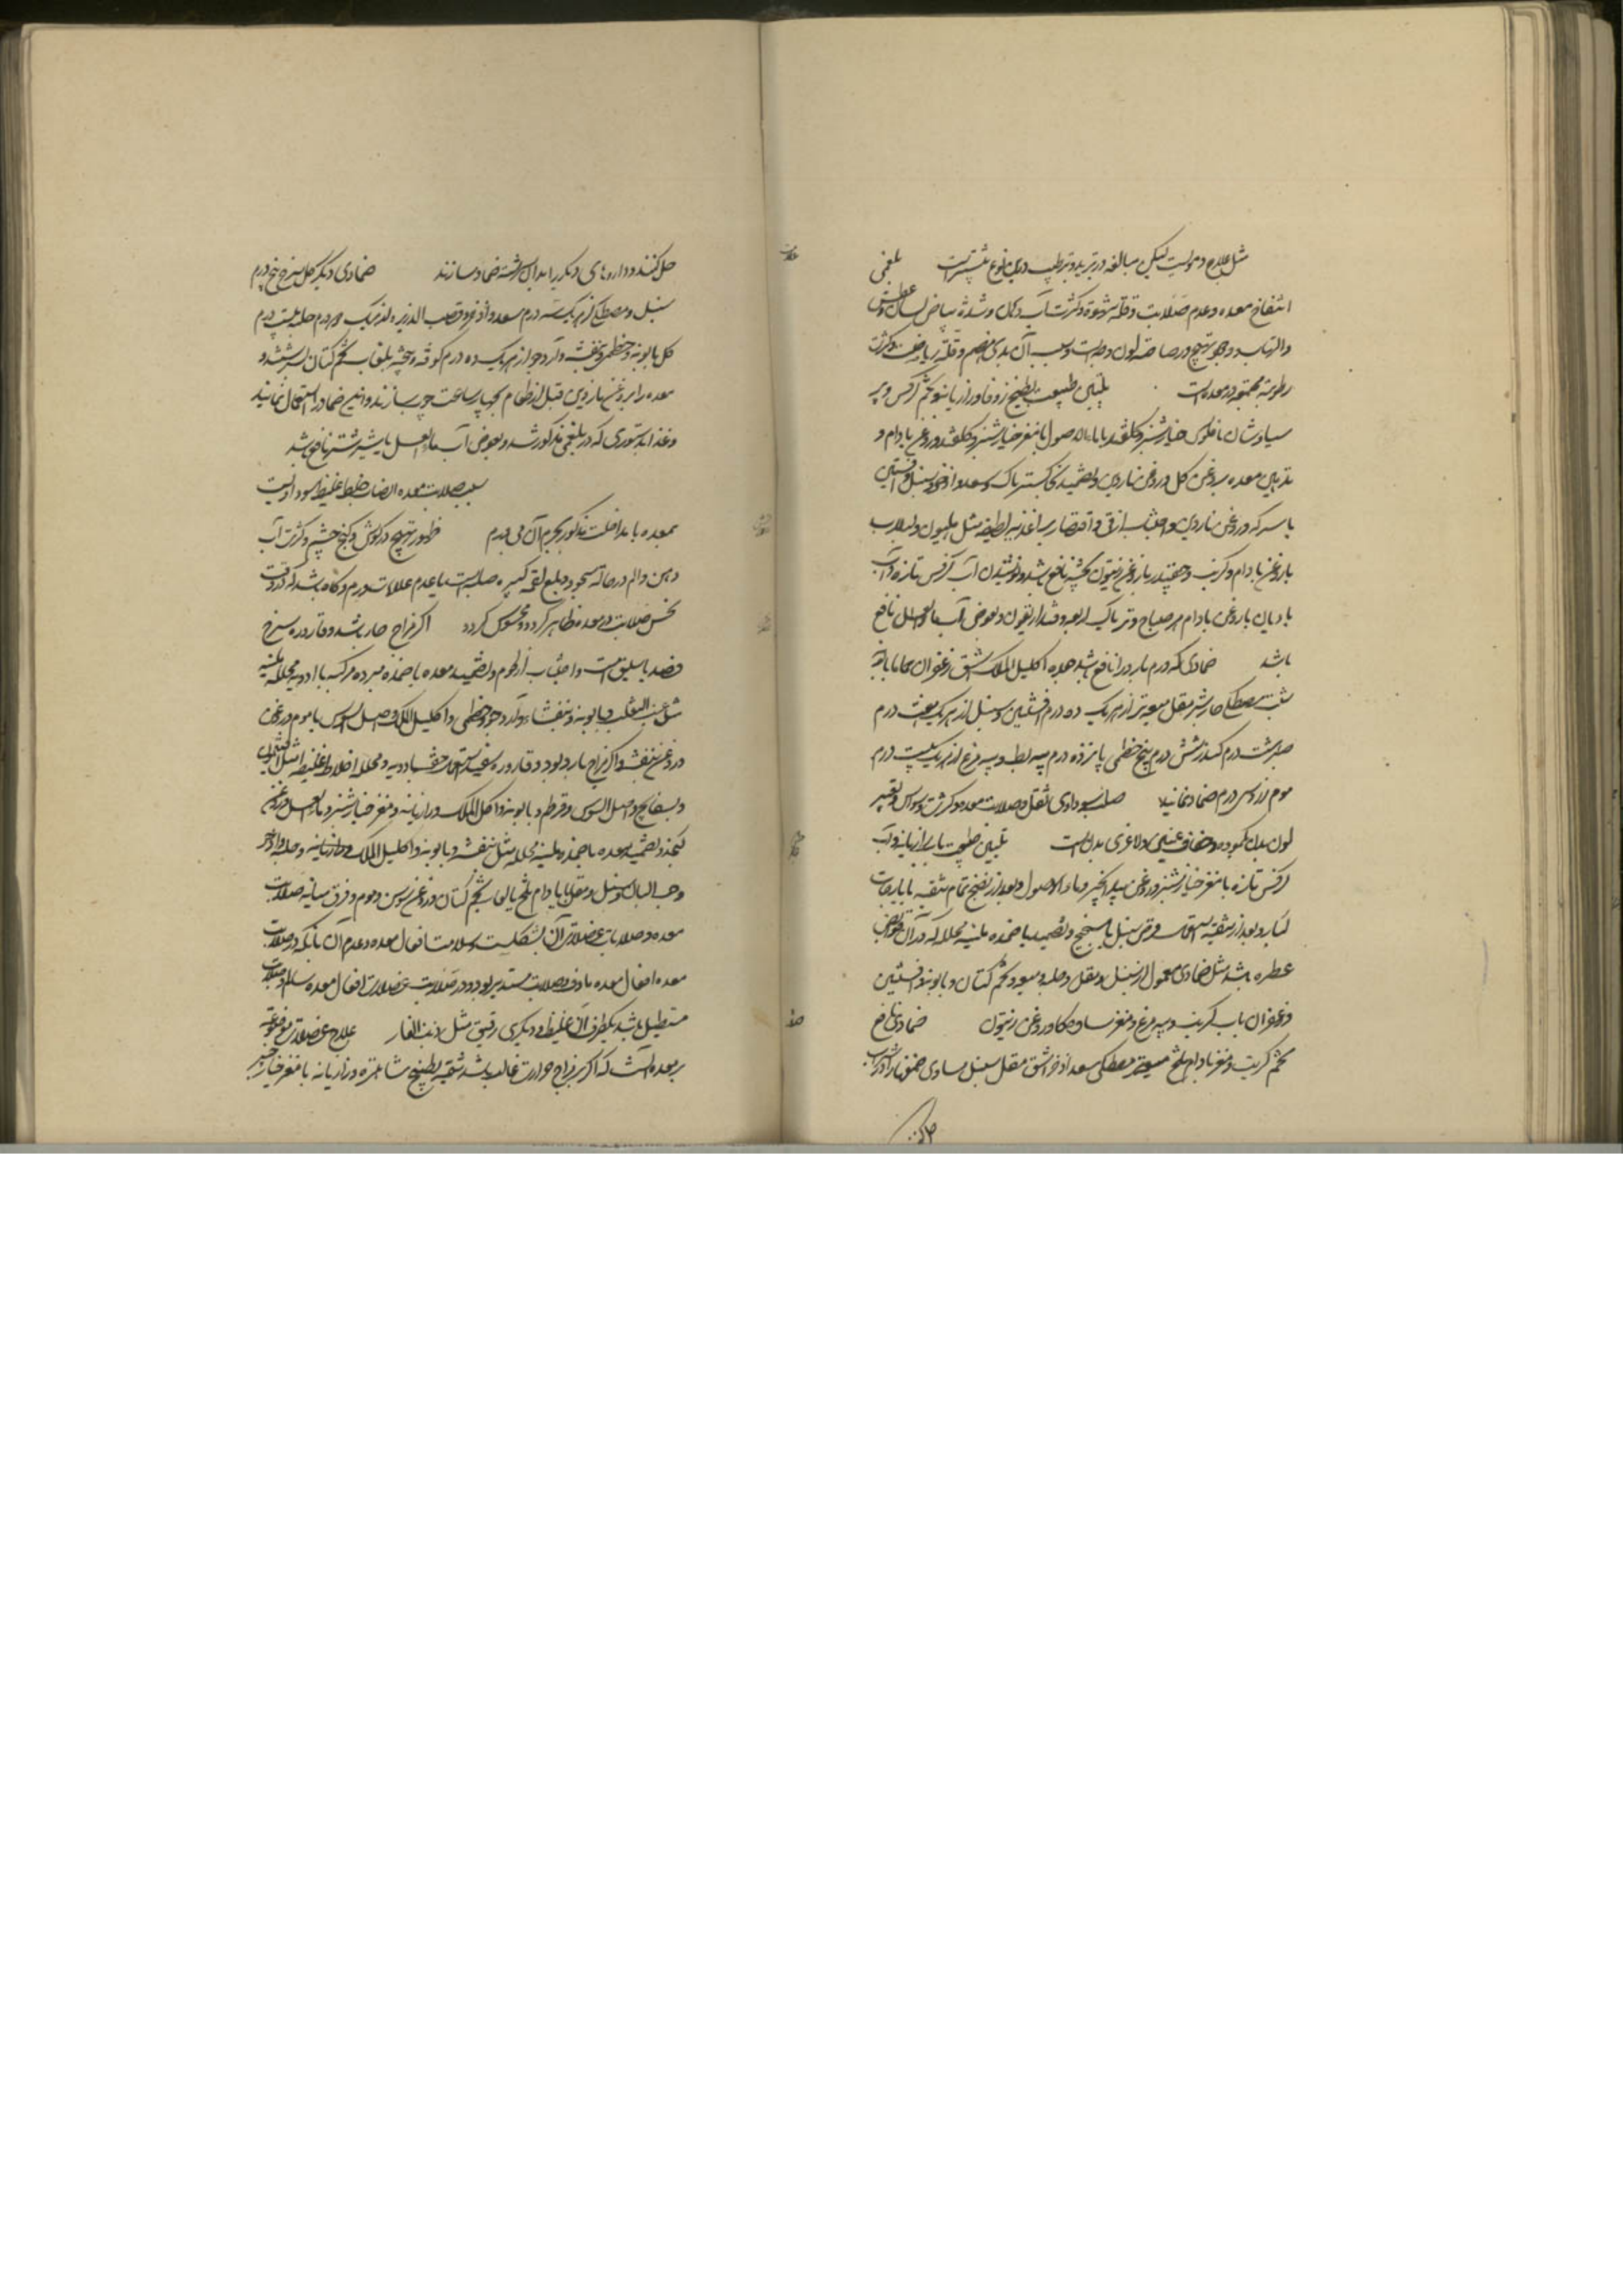 مثل علاج دمویست لیکن مبالغه در تبرید و ترطیب درین نوع بیشتر است بلغمی
انتفاخ معده و عدم صلابت و قلة شهوة و کثرت آب دهان و شدة بیاض لسان و عطش
والتهاب و وجود تهیج و رصاصیة لون و جه است و سبب آن بدی هضم و قلة ریاضت و کثرت
رطوبة مجتمعه در معده است تلیین طبیعت بطبیخ زوفا و رازیانه و تخم کرفس و پر
سیاوشان با فلوس خیارشنبر و گلقند یا ماءالاصول با مغز خیارشنبر و گلقند و روغن بادام و
تدهین معده بروغن گل و روغن ناردین و تضمید بخاکستر تاک و سعد و اذخر و سنبل و افسنتین
با سرکه و روغن ناردین و اجتناب از قی و اقتصار بر اغذیه لطیفه مثل هلیون و لبلاب
با روغن بادام و کرنب و چقندر با روغن زیتون پخته نافع باشد و نوشیدن آب کرفس تازه و آب
بادیان با روغن بادام هر صباح و تریاک اربعه و قنداریقون و بعوض آب ماءالعسل نافع
باشد ضمادی که ورم بارد را نافع باشد حلبه اکلیل الملک اشق زعفران حماما بابونه
شبت مصطکی جاوشیر مقل میعه تر از هر یک ده درم افسنتین و سنبل از هر یک هفت درم
صبر هشت درم کندر شش درم بیخ خطمی پانزده درم پیه بط و پیه مرغ از هر یک بیست درم
موم زرد سی درم ضماد نمایند صلب سوداوی ثقل و صلابت معده و کثرت وسواس و تغییر
لون بدن بکمودة و جفاف عینین و لاغری بدنست تلیین طبیعت بآب رازیانه و آب
کرفس تازه با مغز خیارشنبر و روغن بیدانجیر و ماءالاصول و بعد از نضج تمام تنقیه بایارجات
کبار و بعد از تنقیه استعمال قرص سنبل با سکنجبین و تضمید باضمده ملینه محلله که در آن قوابض
عطره باشد مثل ضمادی معمول از سنبل و مقل و حلبه و سعد و تخم کتان و بابونه و افسنتین
و زعفران بآب کرنب و پیه مرغ و مغز ساق گاو و روغن زیتون ضمادی نافع
تخم کرنب و مغز بادام تلخ میعه مصطکی سعد اذخر اشق مقل سنبل مساوی صمغها را در شراب
حل کنند
حل کنند و داروهای دیگر را بدان سرشته ضماد سازند ضمادی دیگر گل سرخ پنج درم
سنبل و مصطکی از هر یک سه درم سعد و اذخر و قصب الذریره از هر یک دو درم حلبه بیست درم
گل بابونه و خطمی و بنفشه و آرد جو از هر یک ده درم کوفته و بیخته بلعاب تخم کتان بسرشند و
معده را بروغن ناردین قبل از طعام بچهار ساعت چرب سازند و این ضماد را استعمال نمایند
و غذا بدستوری که در بلغمی مذکور شد و بعوض آب ماءالعسل یا شیر شتر نافع باشد
سبب صلابت معده انصباب خلط غلیظ سوداویست
بمعده یا مداخلت مذکور بجرم آن بی ورم ظهور تهیج در گوش و کنج چشم و کثرت آب
دهن و الم در حالة سجود و بلع لقمه کبیره صلابت با عدم علامات ورم و گاه باشد که در وقت
لمس صلابت در معده ظاهر گردد و محسوس گردد اگر مزاج حار باشد و قاروره سرخ
فصد باسلیق است و اجتناب از لحوم و تضمید معده باضمده مبرده مرکبه با ادویه محلله ملینه
مثل عنب الثعلب و بابونه و بنفشه و آرد جو و خطمی و اکلیل الملک و اصل السوس با موم روغن
و روغن بنفشه و اگر مزاج بارد بود و قاروره سفید استعمال حقنه بادویه محلله اخلاط غلیظه مثل افتیمون
و بسفایج و اصل السوس و قرطم و بابونه و اکلیل الملک و رازیانه و مغز خیارشنبر و ماءالعسل و روغن
کنجد و تضمید معده باضمده ملینه محلله مثل بنفشه و بابونه و اکلیل الملک و رازیانه و حلبه و اذخر
و حب البان و سنبل و مقل با بادام تلخ یا لعاب تخم کتان و روغن سوسن و موم و فرق میانه صلابت
معده و صلابات عضلات آن بشکلست و سلامت افعال معده و عدم آن بآنکه در صلابت
معده افعال معده ماؤف و صلابت مستدیر بود و در صلابت عضلات افعال معده سالم و صلابت
مستطیل باشد یکطرف آن غلیظ و دیگری رقیق مثل ذنب الفار علاج عضلات موضوعه
بر معده آنست که اگر بر مزاج حرارت غالب باشد تنقیه بطبیخ شاهتره و رازیانه با مغز خیارشنبر